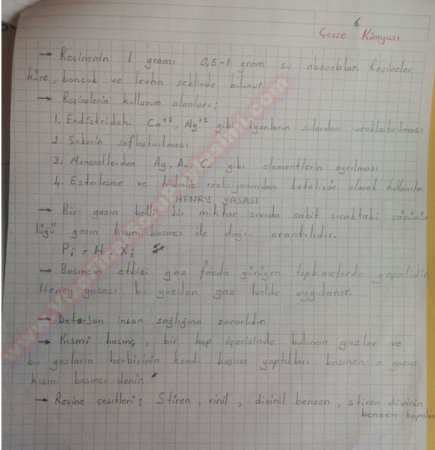 6
Çevre Kimyası
→ Reçinenin 1 gramı 0,5-1 gram su absorblar. Reçineler
küre, boncuk ve levha şeklinde bulunur.
→ Reçinelerin kullanım alanları;
1. Endüstrideki Ca+2, Mg+2 gibi iyonların sulardan uzaklaştırılması
2. Şekerin saflaştırılması
3. Minerallerden Ag, Au, gibi elementlerin ayrılması
4. Esterleşme ve hidroliz reaksiyonundan katalizör olarak kullanılır
HENRY YASASI
→ Bir gazın belli bir miktar sıvıda sabit sıcaktaki çözünür
lüğü gazın kısmi basıncı ile doğru orantılıdır.
Pi = H . Xi
→ Basıncın etkisi gaz fazda görülen tepkimelerde geçerlidir.
Henry yasası bu yüzden gaz halde uygulanır.
→ Deterjan insan sağlığına zararlıdır.
→ Kısmi basınç, bir kap içerisinde bulunan gazlar ve
bu gazların herbirinin kendi başına yaptıkları basınca o gazın
kısmi basıncı denir.
→ Reçine çeşitleri; Stiren, vinil, divinil benzen, stiren divinin
benzen